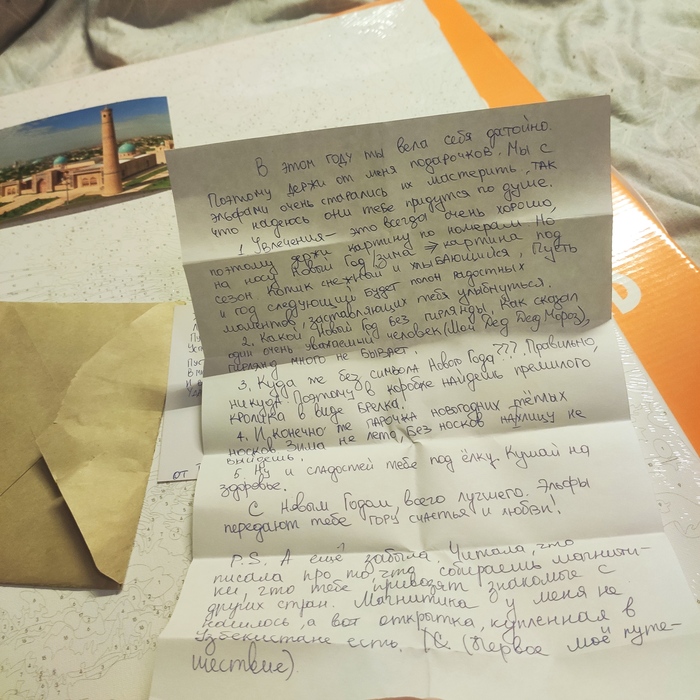 В этом году ты вела себя достойно.
Поэтому держи от меня подарочков. Мы с
эльфами очень старались их мастерить, так
что надеюсь они тебе придутся по душе.
1. Увлечения – это всегда очень хорошо,
поэтому держи картину по номерам. Но
на носу Новый Год/зима ⇒ картина под
сезон. Котик снежный и улыбающийся. Пусть
и год следующий будет полон радостных
моментов, заставляющих тебя улыбнуться.
2. Какой Новый Год без гирлянды. Как сказал
один очень уважаемый человек (Мой Дед Дед Мороз),
гирлянд много не бывает.
3. Куда же без символа Нового Года??? Правильно,
никуда. Поэтому в коробке найдёшь премилого
кролика в виде брелка!
4. И конечно же парочка новогодних тёплых
носков. Зима не лето, без носков на улицу не
выйдешь.
5. Ну и сладостей тебе под ёлку. Кушай на
здоровье.
С Новым Годом, всего лучшего. Эльфы
передают тебе гору счастья и любви!
P.S. А ещё забыла. Читала, что
писала про то, что собираешь магнити-
ки, что тебе привозят знакомые с
других стран. Магнитика у меня не
нашлось, а вот открытка, купленная в
Узбекистане есть. (Первое моё путе-
шествие)
от